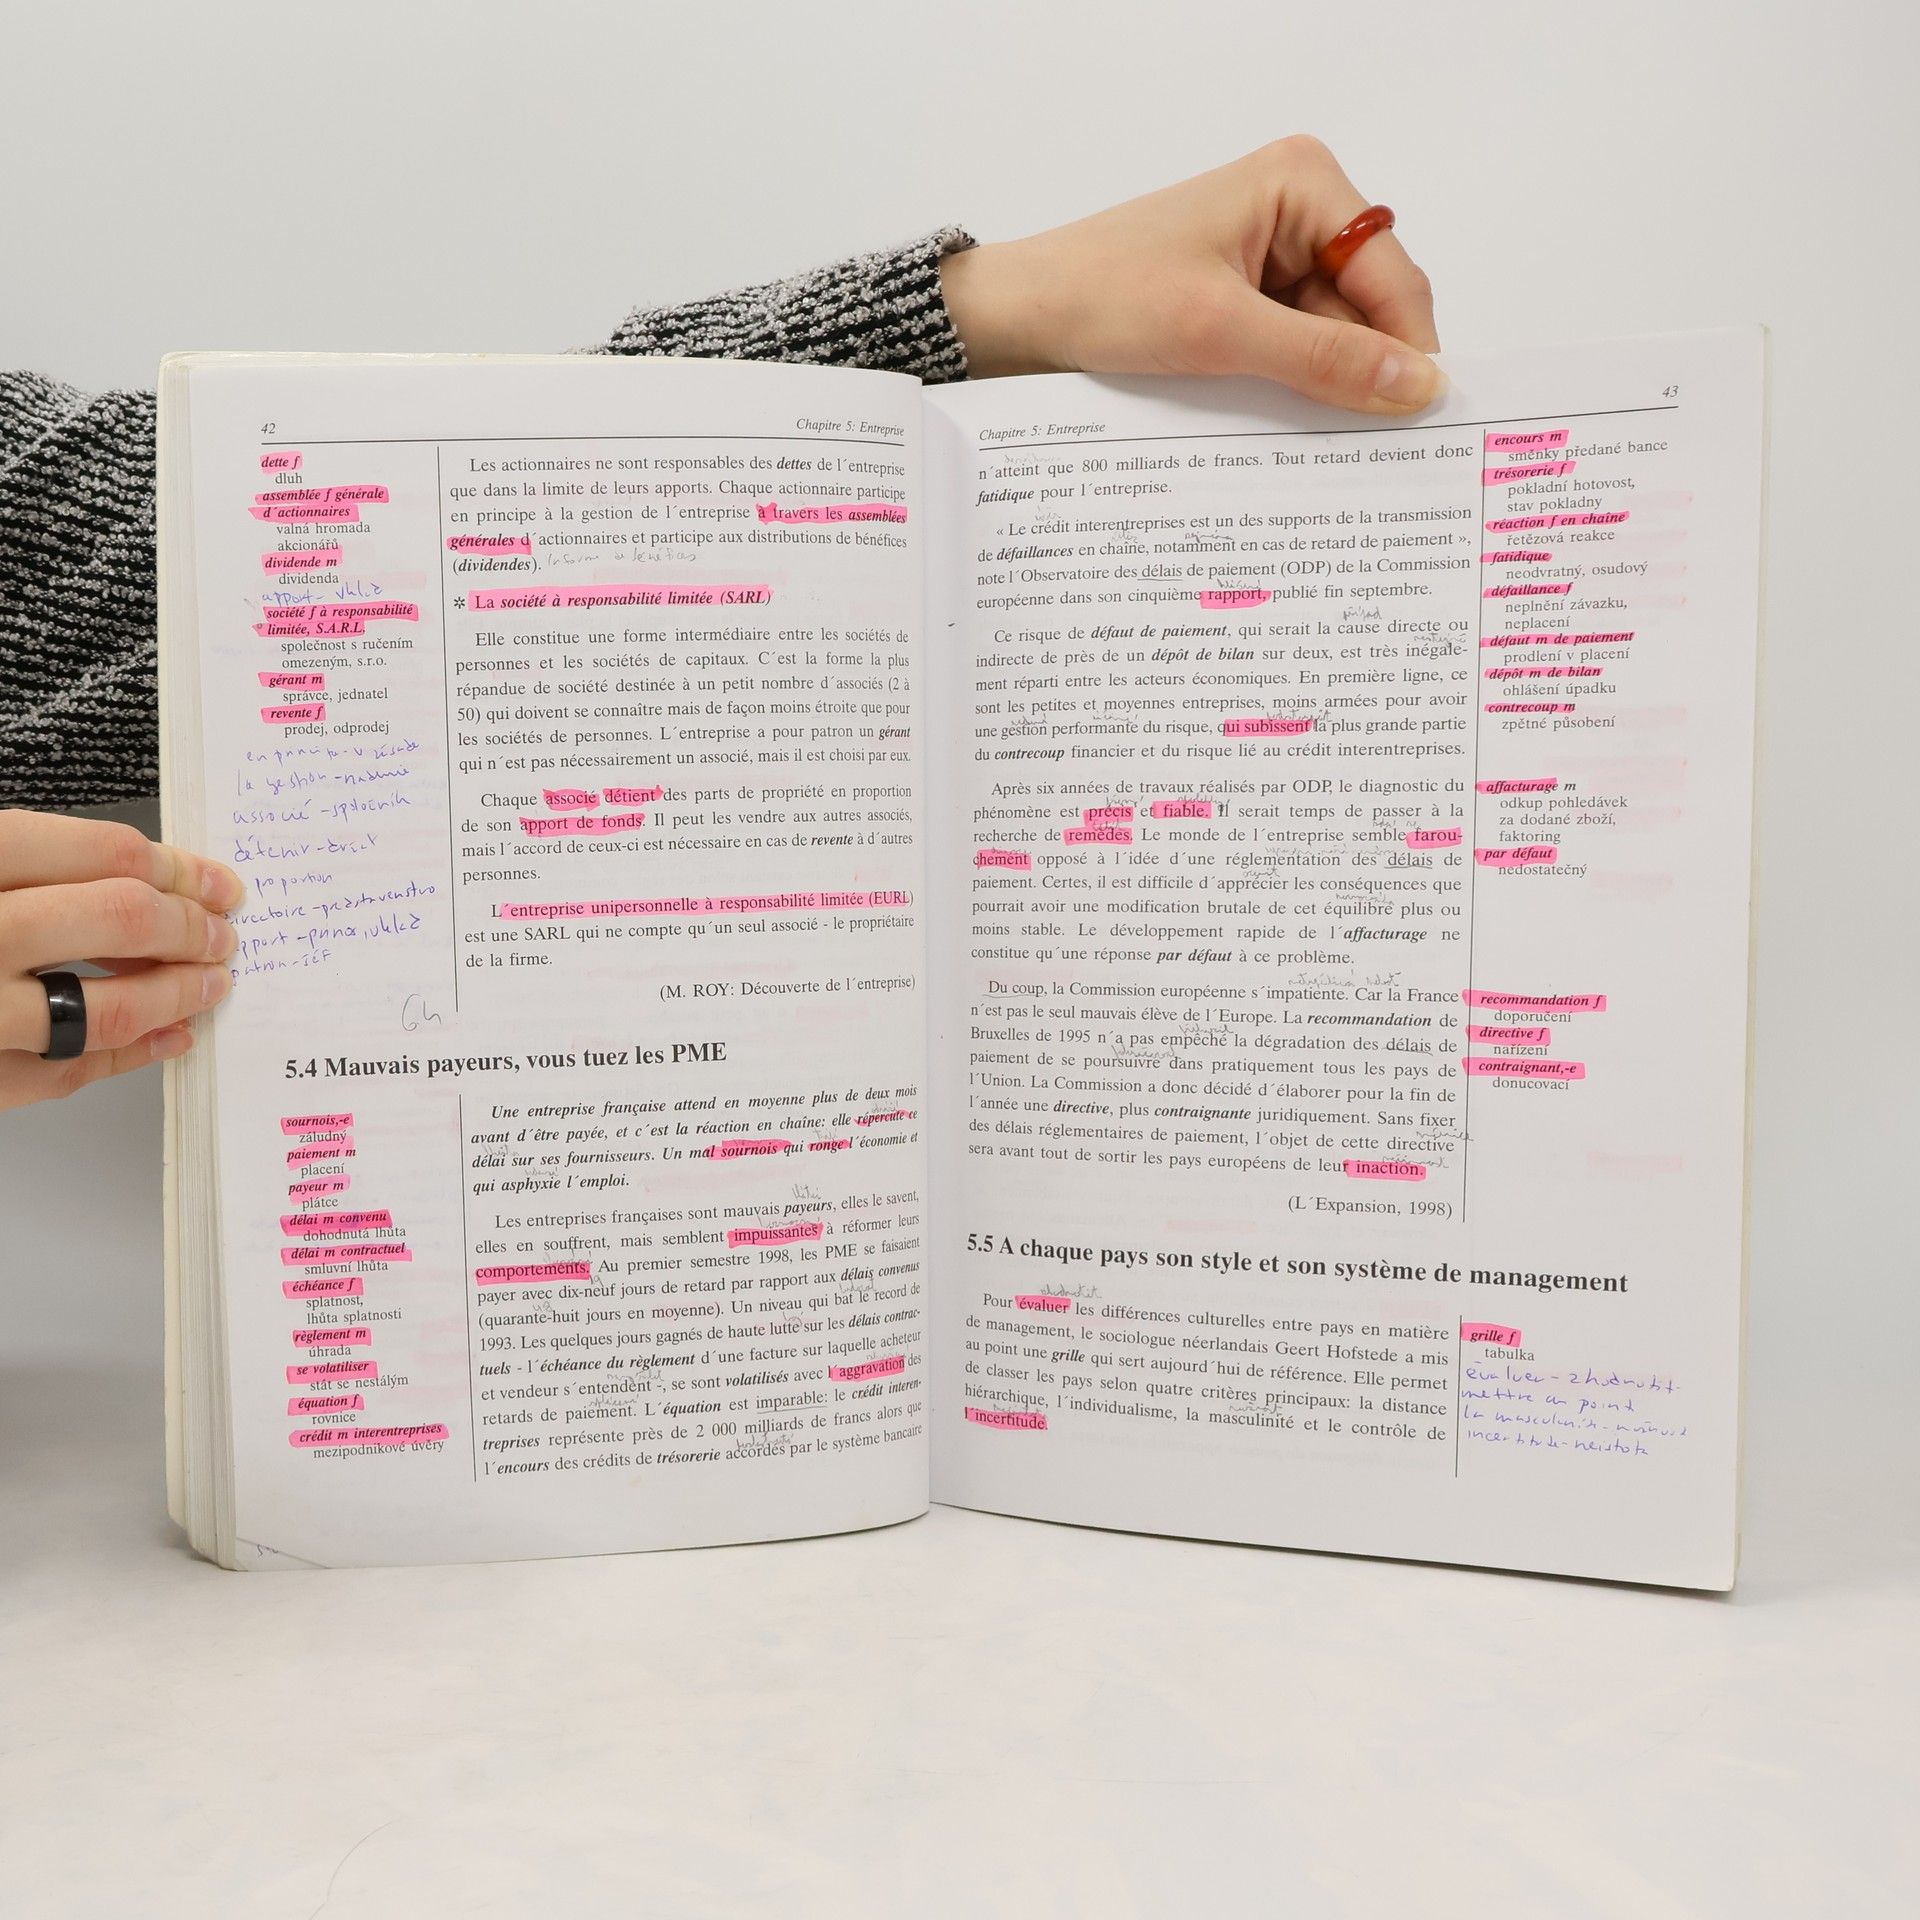 42
Chapitre 5: Entreprise
dette f
dluh
assemblée f générale
d´actionnaires
valná hromada
akcionářů
dividende m
dividenda
apport - vklad
société f à responsabilité
limitée, S.A.R.L.
společnost s ručením
omezeným, s.r.o.
gérant m
správce, jednatel
revente f
prodej, odprodej
en principe - v zásadě
la gestion -
associé - společník
détenir - držet
proportion
directoire - představenstvo
apport - přínos, vklad
patron - šéf
Les actionnaires ne sont responsables des dettes de l´entreprise
que dans la limite de leurs apports. Chaque actionnaire participe
en principe à la gestion de l´entreprise à travers les assemblées
générales d´actionnaires et participe aux distributions de bénéfices
(dividendes).
✲ La société à responsabilité limitée (SARL)
Elle constitue une forme intermédiaire entre les sociétés de
personnes et les sociétés de capitaux. C´est la forme la plus
répandue de société destinée à un petit nombre d´associés (2 à
50) qui doivent se connaître mais de façon moins étroite que pour
les sociétés de personnes. L´entreprise a pour patron un gérant
qui n´est pas nécessairement un associé, mais il est choisi par eux.
Chaque associé détient des parts de propriété en proportion
de son apport de fonds. Il peut les vendre aux autres associés,
mais l´accord de ceux-ci est nécessaire en cas de revente à d´autres
personnes.
L´entreprise unipersonnelle à responsabilité limitée (EURL)
est une SARL qui ne compte qu´un seul associé - le propriétaire
de la firme.
(M. ROY: Découverte de l´entreprise)
5.4 Mauvais payeurs, vous tuez les PME
sournois,-e
záludný
paiement m
placení
payeur m
plátce
délai m convenu
dohodnutá lhůta
délai m contractuel
smluvní lhůta
échéance f
splatnost,
lhůta splatnosti
règlement m
úhrada
se volatiliser
stát se nestálým
équation f
rovnice
crédit m interentreprises
mezipodnikové úvěry
Une entreprise française attend en moyenne plus de deux mois
avant d´être payée, et c´est la réaction en chaîne: elle répercute ce
délai sur ses fournisseurs. Un mal sournois qui ronge l´économie et
qui asphyxie l´emploi.
Les entreprises françaises sont mauvais payeurs, elles le savent,
elles en souffrent, mais semblent impuissantes à réformer leurs
comportements. Au premier semestre 1998, les PME se faisaient
payer avec dix-neuf jours de retard par rapport aux délais convenus
(quarante-huit jours en moyenne). Un niveau qui bat le record de
1993. Les quelques jours gagnés de haute lutte sur les délais contrac-
tuels - l´échéance du règlement d´une facture sur laquelle acheteur
et vendeur s´entendent -, se sont volatilisés avec l´aggravation des
retards de paiement. L´équation est imparable: le crédit interen-
treprises représente près de 2 000 milliards de francs alors que
l´encours des crédits de trésorerie accordés par le système bancaire
43
Chapitre 5: Entreprise
n´atteint que 800 milliards de francs. Tout retard devient donc
fatidique pour l´entreprise.
« Le crédit interentreprises est un des supports de la transmission
de défaillances en chaîne, notamment en cas de retard de paiement »,
note l´Observatoire des délais de paiement (ODP) de la Commission
européenne dans son cinquième rapport, publié fin septembre.
Ce risque de défaut de paiement, qui serait la cause directe ou
indirecte de près de un dépôt de bilan sur deux, est très inégale-
ment réparti entre les acteurs économiques. En première ligne, ce
sont les petites et moyennes entreprises, moins armées pour avoir
une gestion performante du risque, qui subissent la plus grande partie
du contrecoup financier et du risque lié au crédit interentreprises.
Après six années de travaux réalisés par ODP, le diagnostic du
phénomène est précis et fiable. Il serait temps de passer à la
recherche de remèdes. Le monde de l´entreprise semble farou-
chement opposé à l´idée d´une réglementation des délais de
paiement. Certes, il est difficile d´apprécier les conséquences que
pourrait avoir une modification brutale de cet équilibre plus ou
moins stable. Le développement rapide de l´affacturage ne
constitue qu´une réponse par défaut à ce problème.
Du coup, la Commission européenne s´impatiente. Car la France
n´est pas le seul mauvais élève de l´Europe. La recommandation de
Bruxelles de 1995 n´a pas empêché la dégradation des délais de
paiement de se poursuivre dans pratiquement tous les pays de
l´Union. La Commission a donc décidé d´élaborer pour la fin de
l´année une directive, plus contraignante juridiquement. Sans fixer
des délais réglementaires de paiement, l´objet de cette directive
sera avant tout de sortir les pays européens de leur inaction.
(L´Expansion, 1998)
encours m
směnky předané bance
trésorerie f
pokladní hotovost,
stav pokladny
réaction f en chaîne
řetězová reakce
fatidique
neodvratný, osudový
défaillance f
neplnění závazku,
neplacení
défaut m de paiement
prodlení v placení
dépôt m de bilan
ohlášení úpadku
contrecoup m
zpětné působení
affacturage m
odkup pohledávek
za dodané zboží,
faktoring
par défaut
nedostatečný
recommandation f
doporučení
directive f
nařízení
contraignant,-e
donucovací
5.5 A chaque pays son style et son système de management
Pour évaluer les différences culturelles entre pays en matière
de management, le sociologue néerlandais Geert Hofstede a mis
au point une grille qui sert aujourd´hui de référence. Elle permet
de classer les pays selon quatre critères principaux: la distance
hiérarchique, l´individualisme, la masculinité et le contrôle de
l´incertitude.
grille f
tabulka
évaluer - zhodnotit
mettre au point
la masculinité -
incertitude - nejistota